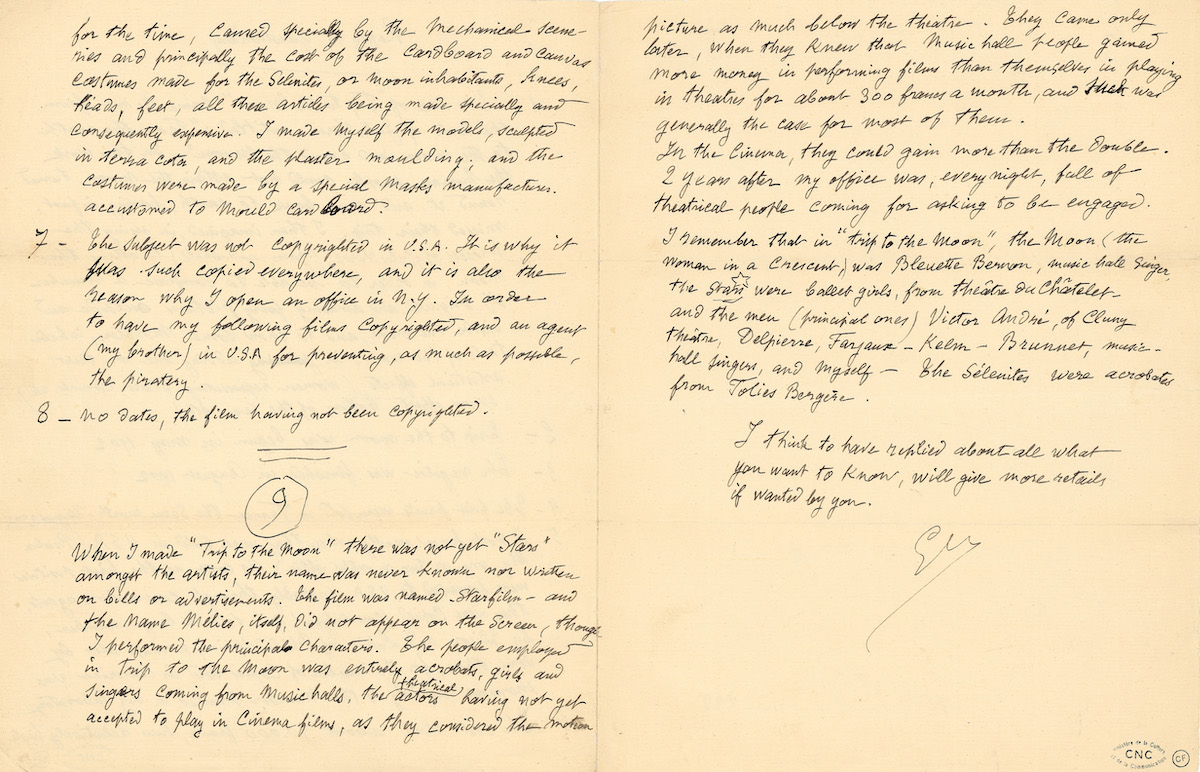 for the time, caused specially by the Mechanical scene-
ries and principally the cost of the Cardboard and canvas
costumes made for the Selenites, or moon inhabitants, knees,
heads, feet, all these articles being made specially and
consequently expensive. I made myself the models, sculpted
in terra cota, and the plaster moulding; and the
costumes were made by a special Masks manufacturer.
accustomed to Mould cardboard.
7 - The subject was not copyrighted in U.S.A. It is why it
was such copied everywhere, and it is also the
reason why I open an office in N.Y. In order
to have my following films Copyrighted, and an agent
(my brother) in U.S.A for preventing, as much as possible,
the piratery.
8 - no dates, the film having not been copyrighted.
9
When I made "Trip to the Moon" there was not yet "Stars"
amongst the artists, their name was never known nor written
on bills or advertisements. The film was named - Starfilm - and
the Name Méliès, itself, did not appear on the Screen, though
I performed the principals Characters. The people employed
in trip to the Moon was entirely acrobats, girls and
singers coming from Music halls, the theatrical actors having not yet
accepted to play in Cinema films, as they considered the motion
picture as much below the theatre. They came only
later, when they knew that Music hall people gained
more money in performing films than themselves in playing
in theatres for about 300 francs a month, and such was
generally the case for most of them.
In the Cinema, they could gain more than the double.
2 years after my office was, every night, full of
theatrical people coming for asking to be engaged.
I remember that in "trip to the Moon", the Moon (the
woman in a Crescent,) was Bleuette Bernon, music hall singer,
the Stars were ballet girls, from theâtre du Châtelet -
and the men (principal ones) Victor André, of Cluny
theâtre, Delpierre, Farjaux - Kelm - Brunnet, music-
hall singers, and myself - The Sélenites were acrobats
from Folies Bergère.
I think to have replied about all what
you want to know, will give more retails
if wanted by you.
Ministère de la Culture
et de la Communication
CNC
CF